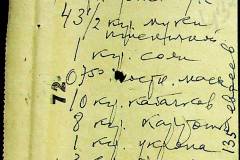 43 1/2 кг. муки
пшеничной
1 кг. соли
0,750 постн. масл
10 кг. кабачков
8 кг. картош
1 кг. укропа
72
135 евреев